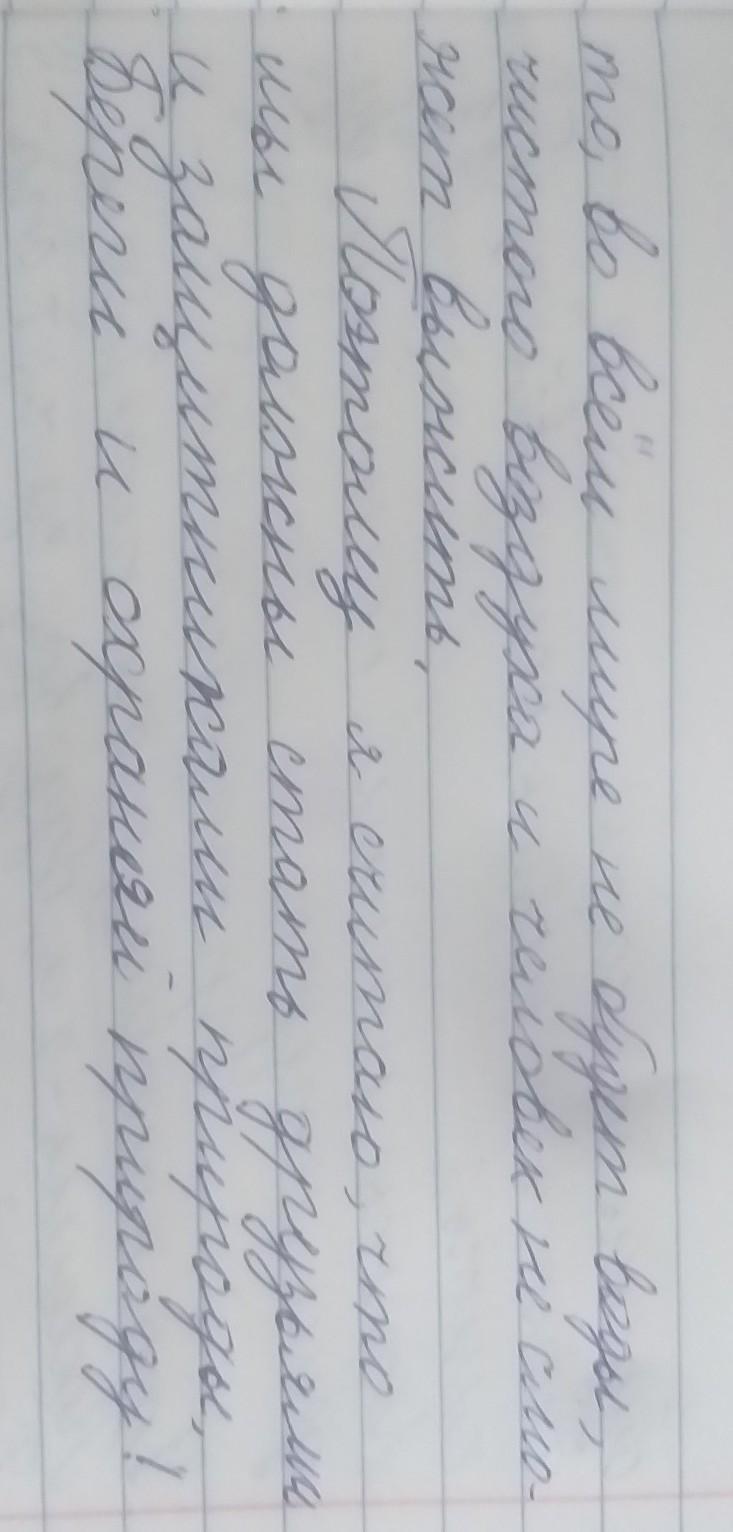 то, во всём мире не будет воды,
чистого воздуха и человек не смо-
жет выжить,
Поэтому я считаю, что
мы должны стать друзьями
и защитниками природы,
Береги и охраняй природу!